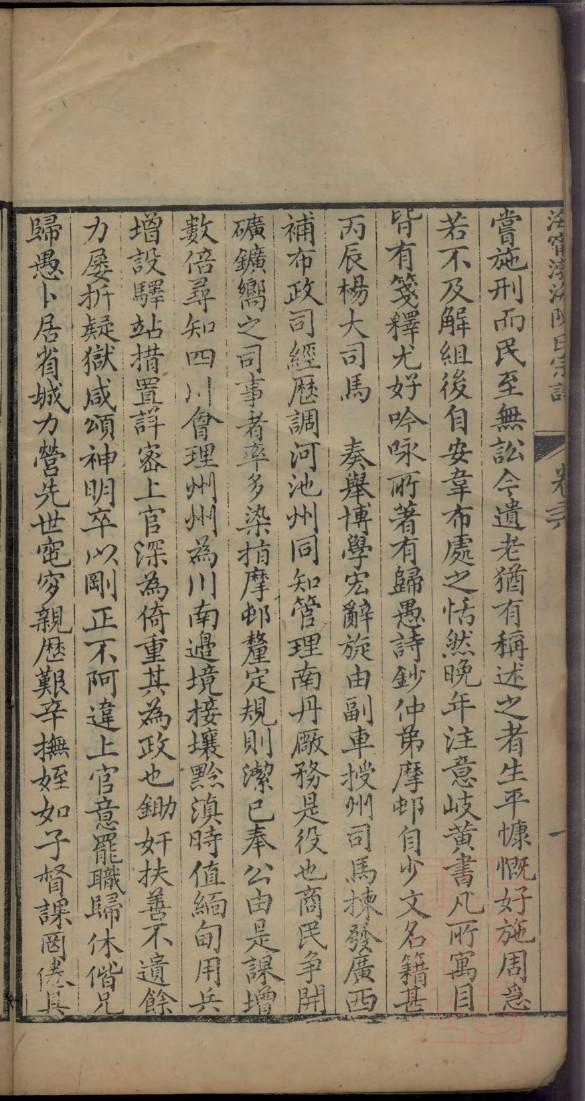 海寧渤海陳氏宗譜 卷
嘗施刑而民至無訟今遺老猶有稱述之者生平慷慨好施周急
若不及解組後自安韋布處之恬然晚年注意岐黃書凡所寓目
皆有箋釋尤好吟咏所著有歸愚詩鈔仲弟摩邨自少文名籍甚
丙辰楊大司馬 奏舉博學宏辭旋由副車授州司馬揀發廣西
補布政司經歷調河池州同知管理南丹廠務是役也商民爭開
礦鑛嚮之司事者率多染指摩邨釐定規則潔已奉公由是課增
數倍尋知四川會理州州為川南邊境接壤黔滇時值緬甸用兵
增設驛站措置詳密上官深為倚重其為政也鋤奸扶善不遺餘
力屡折疑獄咸頌神明卒以剛正不阿違上官意罷職歸休偕兄
歸愚卜居省城力營先世窀穸親歷艱辛撫姪如子督課罔倦其